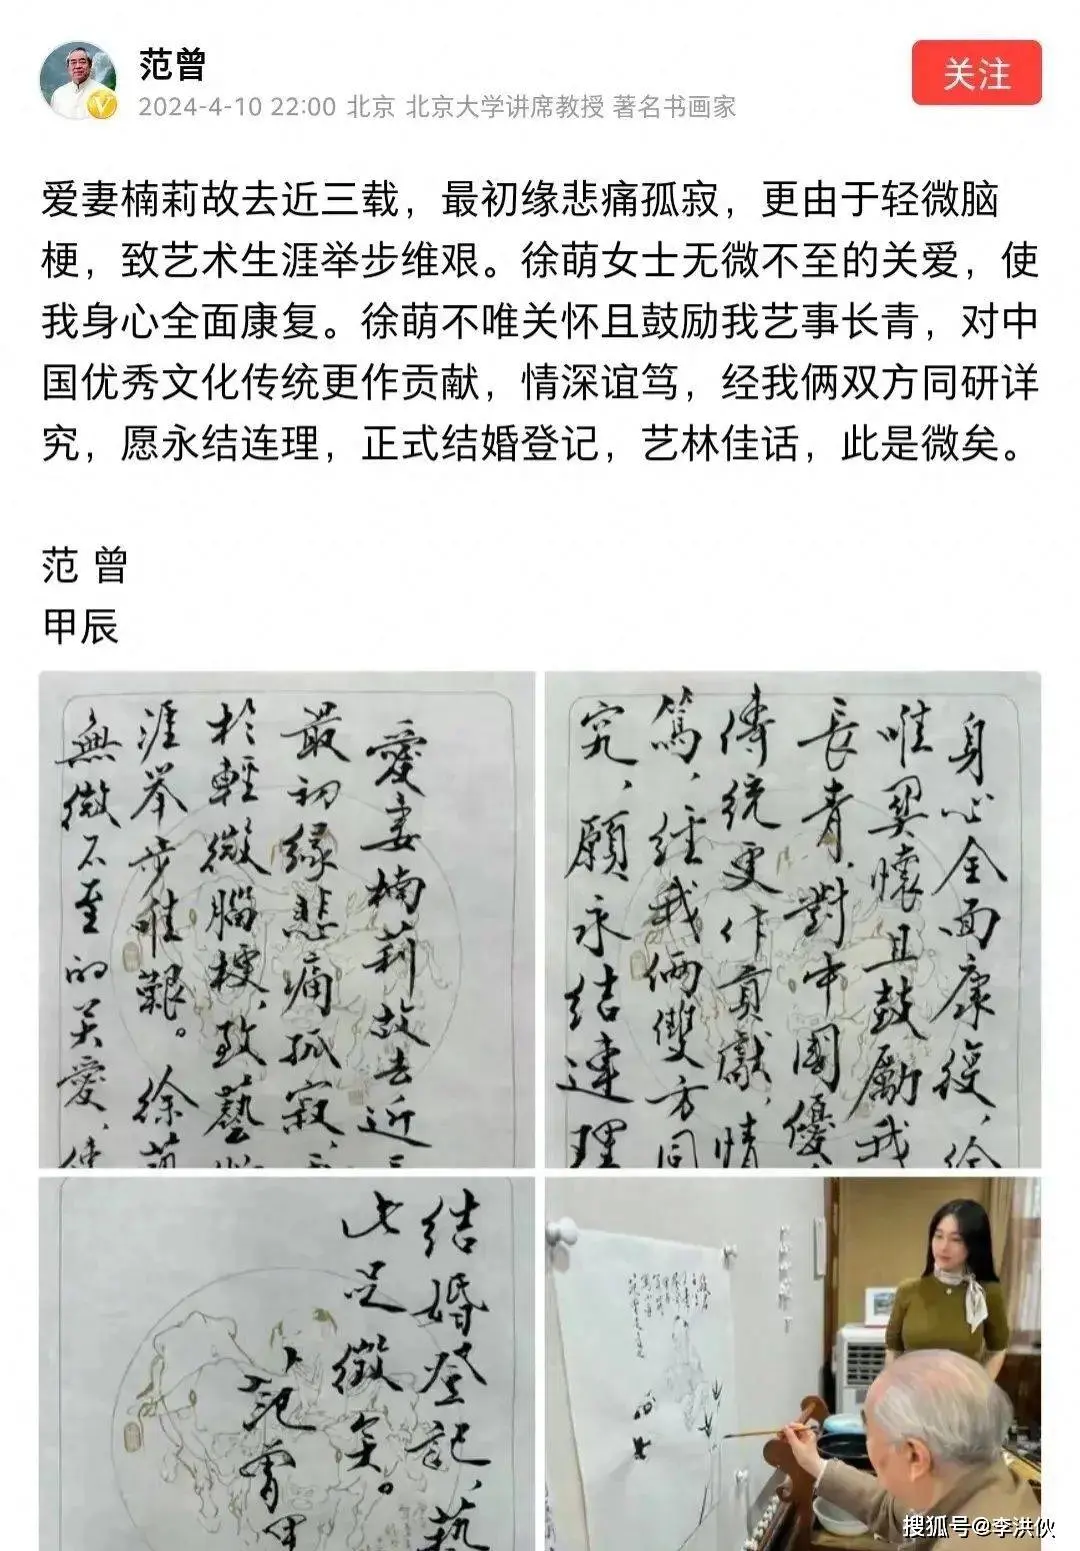 范曾
关注
2024-4-10 22:00 北京 北京大学讲席教授 著名书画家
爱妻楠莉故去近三载，最初缘悲痛孤寂，更由于轻微脑
梗，致艺术生涯举步维艰。徐萌女士无微不至的关爱，使
我身心全面康复。徐萌不唯关怀且鼓励我艺事长青，对中
国优秀文化传统更作贡献，情深谊笃，经我俩双方同研详
究，愿永结连理，正式结婚登记，艺林佳话，此是微矣。
范 曾
甲辰
愛妻楠莉故去近三
最初緣悲痛孤寂，
於輕微腦梗，致藝
涯举步惟艱。徐萌
無微不至的关愛，使
身心全面康復，徐
唯関懷且鼓勵我
長青，對中國優
傳統更作貢獻，情
篤，經我倆雙方同
究，願永结連理
结婚登記，藝
此足徵矣。
范曾甲
搜狐号@李洪伙